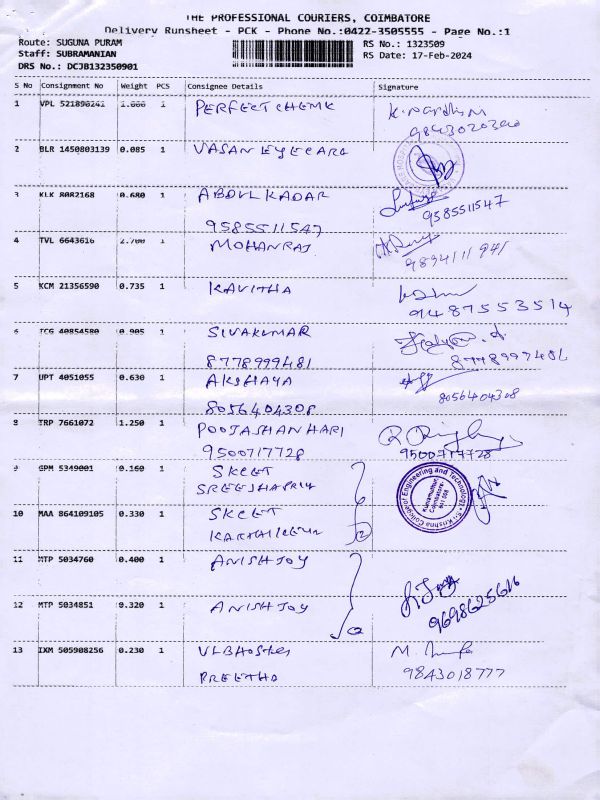 THE PROFESSIONAL COURIERS, COIMBATORE
Delivery Runsheet - PCK - Phone No.:0422-3505555 - Page No.:1
Route: SUGUNA PURAM RS No.: 1323509
Staff: SUBRAMANIAN RS Date: 17-Feb-2024
DRS No.: DCJB132350901
S No Consignment No Weight PCS Consignee Details Signature
1 VPL 521898241 1 PERFECT CHEMK
2 BLR 1450803139 0.085 1 VASAN EYECARE
3 KLK 8082168 0.680 1 ABDUL KADAR
9585511547 9585511547
4 TVL 6643616 2.700 1 MOHANRAJ
5 KCM 21356590 0.735 1 KAVITHA
9487553514
6 TCG 40854580 0.905 1 SIVAKUMAR
8778999481
7 UPT 4051055 0.630 1 AKSHAYA
8056404308 8056404308
8 TRP 7661072 1.250 1 POOJASHANHARI
9500717728 9500717728
9 GPM 5349001 0.160 1 SKCET
SREESHAPRIYA
Sri Krishna College of Engineering and Technology
Kuniamuthur, Coimbatore- 641 008
10 MAA 864109105 0.330 1 SKCET
11 MTP 5034760 0.400 1 ANISH JOY
12 MTP 5034851 0.320 1 ANISH JOY
9698625616
13 IXM 505908256 0.230 1 VLB Hostel
PREETHA 9843018777